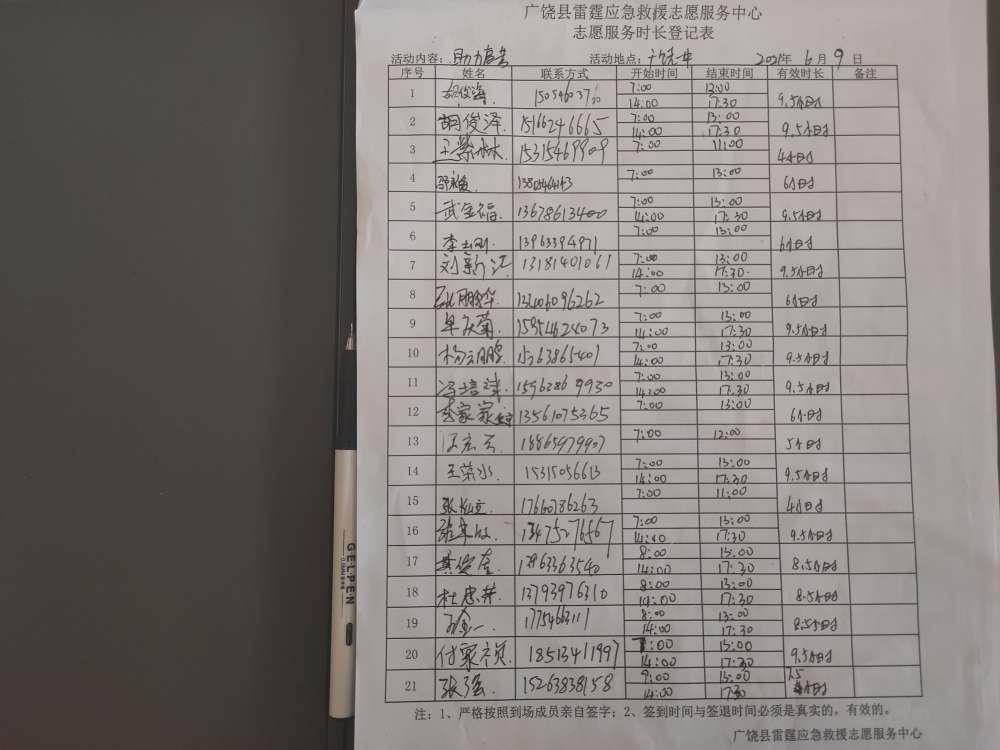 广饶县雷霆应急救援志愿服务中心
志愿服务时长登记表
活动内容：助力高考 活动地点：广饶一中 2021年 6月9日
序号 姓名 联系方式 开始时间 结束时间 有效时长 备注
1 7:00 12:00 9.5小时
14:00 17:30
2 胡俊泽 15166246665 7:00 13:00 9.5小时
14:00 17:30
3 15315469909 7:00 11:00 4小时
4 7:00 13:00 6小时
5 武金福 13678613400 7:00 13:00 9.5小时
14:00 17:30
6 13963394971 7:00 13:00 6小时
7 刘新江 13181401061 7:00 13:00 9.5小时
14:00 17:30
8 7:00 13:00 6小时
9 15954624073 7:00 13:00 9.5小时
14:00 17:30
10 15263865401 7:00 13:00 9.5小时
14:00 17:30
11 冯培津 15963869930 7:00 13:00 9.5小时
14:00 17:30
12 13561075365 7:00 13:00 6小时
13 18865979907 7:00 12:00 5小时
14 王荣水 15315056613 7:00 13:00 9.5小时
14:00 17:30
15 17660786263 7:00 11:00 4小时
16 13475276567 7:00 13:00 9.5小时
14:00 17:30
17 13963363540 8:00 13:00 8.5小时
14:00 17:30
18 杜忠井 13793976310 8:00 13:00 8.5小时
14:00 17:30
19 17754663111 8:00 13:00 8.5小时
14:00 17:30
20 18513411997 7:00 13:00 9.5小时
14:00 17:30
21 张强 15263838158 9:00 13:00 7.5小时
14:00 17:30
注：1、严格按照到场成员亲自签字；2、签到时间与签退时间必须是真实的，有效的。
广饶县雷霆应急救援志愿服务中心
GELPEN